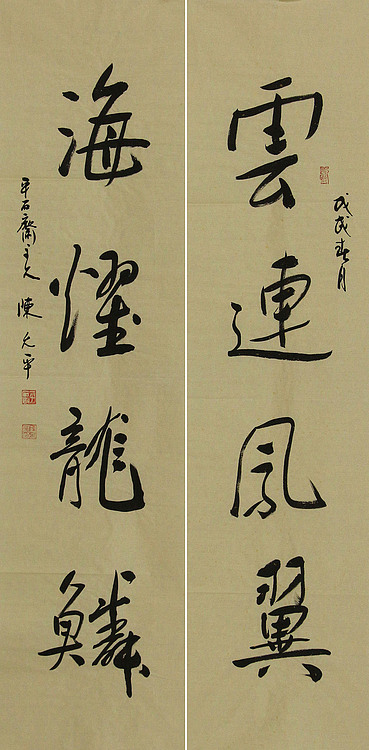 雲連鳳翼
戊戌春月
海耀龍鱗
平石齋主人 陳元平